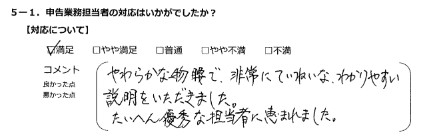 5－1．申告業務担当者の対応はいかがでしたか？
【対応について】
☑満足 □やや満足 □普通 □やや不満 □不満
コメント
良かった点
悪かった点
やわらかな物腰で、非常にていねいな、わかりやすい
説明をいただきました。
たいへん優秀な担当者に恵まれました。